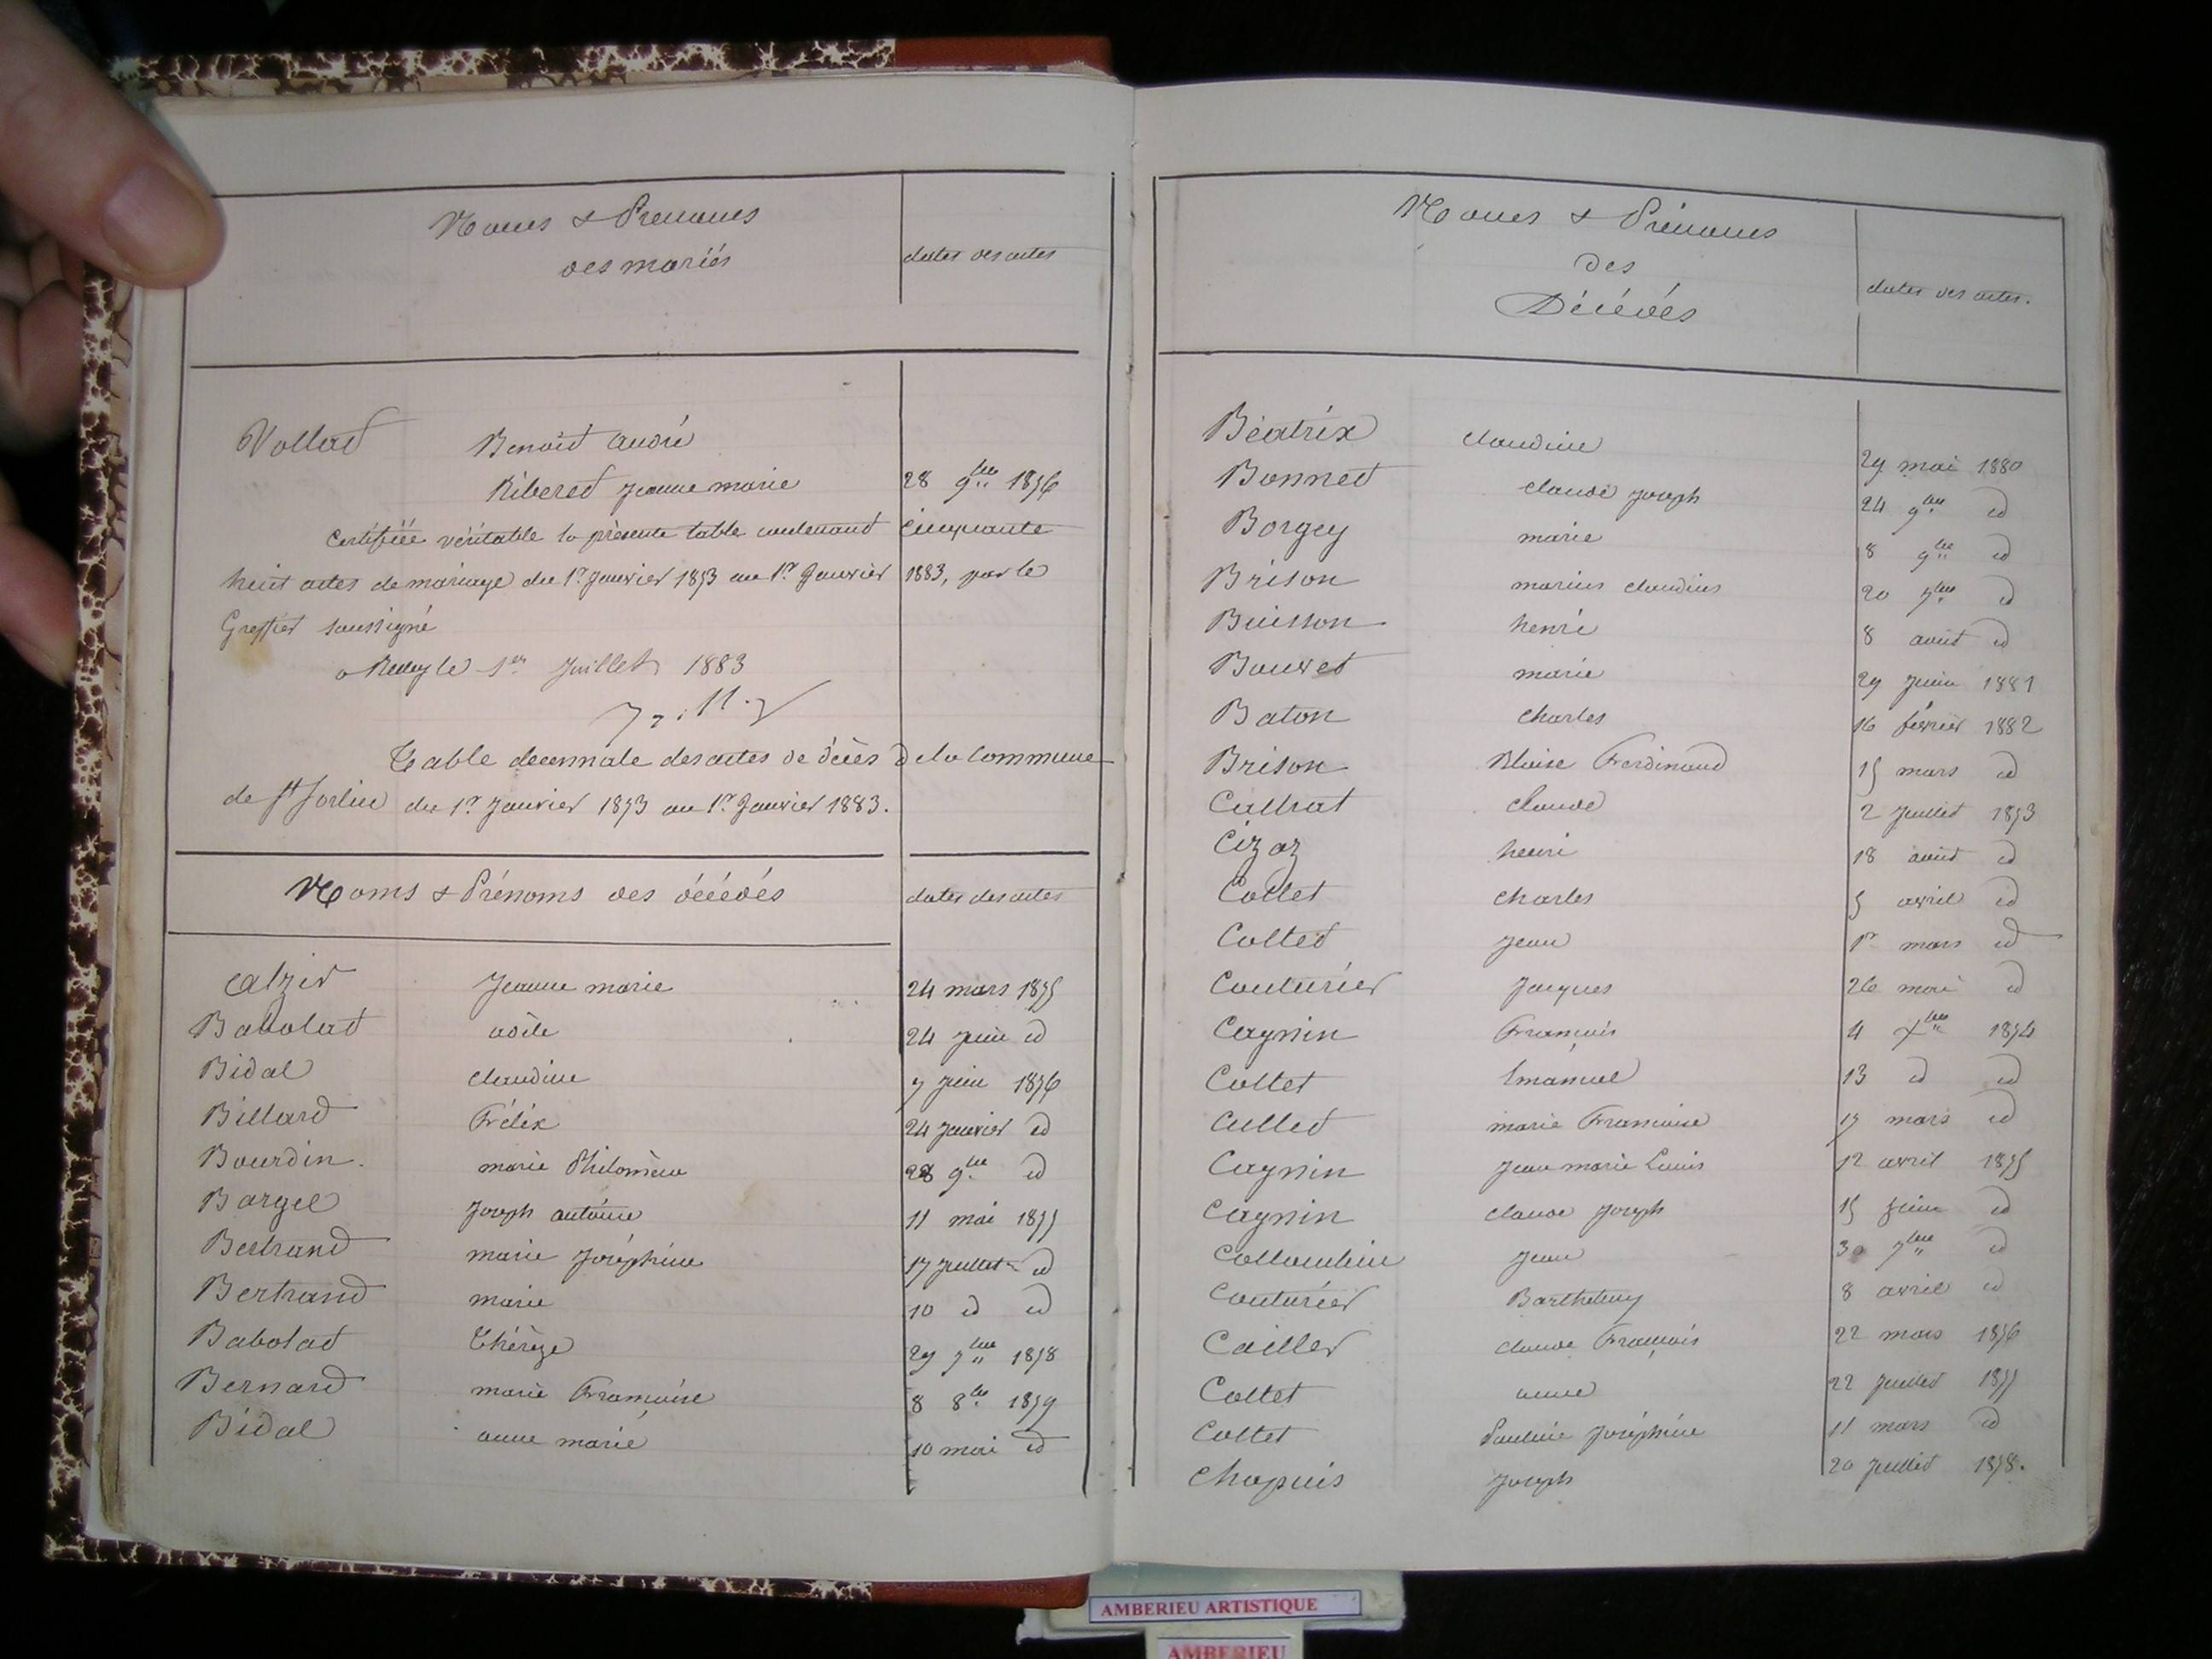 Noms & Prenoms
des mariés
dates des actes
Vollat Benoît André
Riberet Jeanne marie 28 9bre 1876
Certifiée véritable la présente table contenant cinquante
huit actes de mariage du 1er Janvier 1873 au 1er Janvier 1883, par le
Greffier soussigné
le 1er Juillet 1883
Table decennale des actes de décès de la Commune
de St Sorlin du 1er Janvier 1873 au 1er Janvier 1883.
Noms & Prénoms des décédés dates des actes
Alzir Jeanne marie 24 mars 1875
Babolat adèle 24 Juin id
Bidal claudine 7 juin 1876
Billard Félix 24 Janvier id
Bourdin. marie Philomène 28 9bre id
Bargel Joseph antoine 11 mai 1877
Bertrand marie Joséphine 17 Juillet id
Bertrand marie 10 id id
Babolat Thérèze 29 7bre 1878
Bernard marie Françoise 8 8bre 1879
Bidal anne marie 10 mai id
Noms & Prénoms
des
Décédés
dates des actes.
Béatrix claudine 29 mai 1880
Bonnet claude Joseph 24 9bre id
Borgey marie 8 9bre id
Brison marius claudius 20 7bre id
Buisson henri 8 août id
Bouvet marie 29 Juin 1881
Baton charles 16 février 1882
Brison Blaise Ferdinand 15 mars id
Cullrat claude 2 Juillet 1873
Cizoz henri 18 août id
Collet charles 5 avril id
Collet Jean 1er mars id
Couturier Jacques 26 mai id
Cagnin François 4 Xbre 1874
Collet Emanuel 13 id id
Cullet marie Françoise 17 mars id
Cagnin Jean marie Louis 12 avril 1875
Cagnin claude Joseph 15 juin id
Collombin Jean 30 7bre id
Couturier Barthelemy 8 avril id
Cailler claude François 22 mars 1876
Collet anne 22 Juillet 1877
Collet Pauline Joséphine 11 mars id
Chapuis Joseph 20 Juillet 1878.
AMBERIEU ARTISTIQUE
AMBERIEU